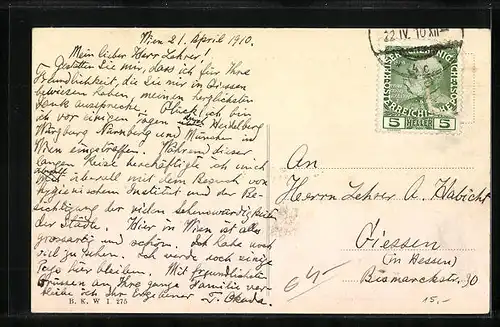 Wien 21. April 1910.
Mein lieber Herr Lehrer!
Gestatten Sie mir, dass ich für Ihre
Freundlichkeit, die Sie mir in Giessen
bewiesen haben, meinen herzlichsten
Dank ausspreche. Glücklich bin
ich vor einigen Tagen durch Heidelberg
Würzburg Nürnberg und München in
Wien eingetroffen. Während dieser
langen Reise beschäftigte ich mich
überall mit dem Besuch von
hygienischem Institut und der Be-
sichtigung der vielen Sehenswürdigkeit
der Städte. Hier in Wien ist alles
grossartig und schön. Ich habe noch
viel zu sehen. Ich werde noch einige
Tage hier bleiben. Mit freundlichsten
Grüssen an Ihre ganze Familie ver-
bleibe ich Ihr Ergebener T. Okada.
B. K. W. I. 275
22 IV. 10 XII
5 HELLER 5
An
Herrn Lehrer A. Habicht
Giessen
(in Hessen)
Bismarckstr. 30
64
15,-